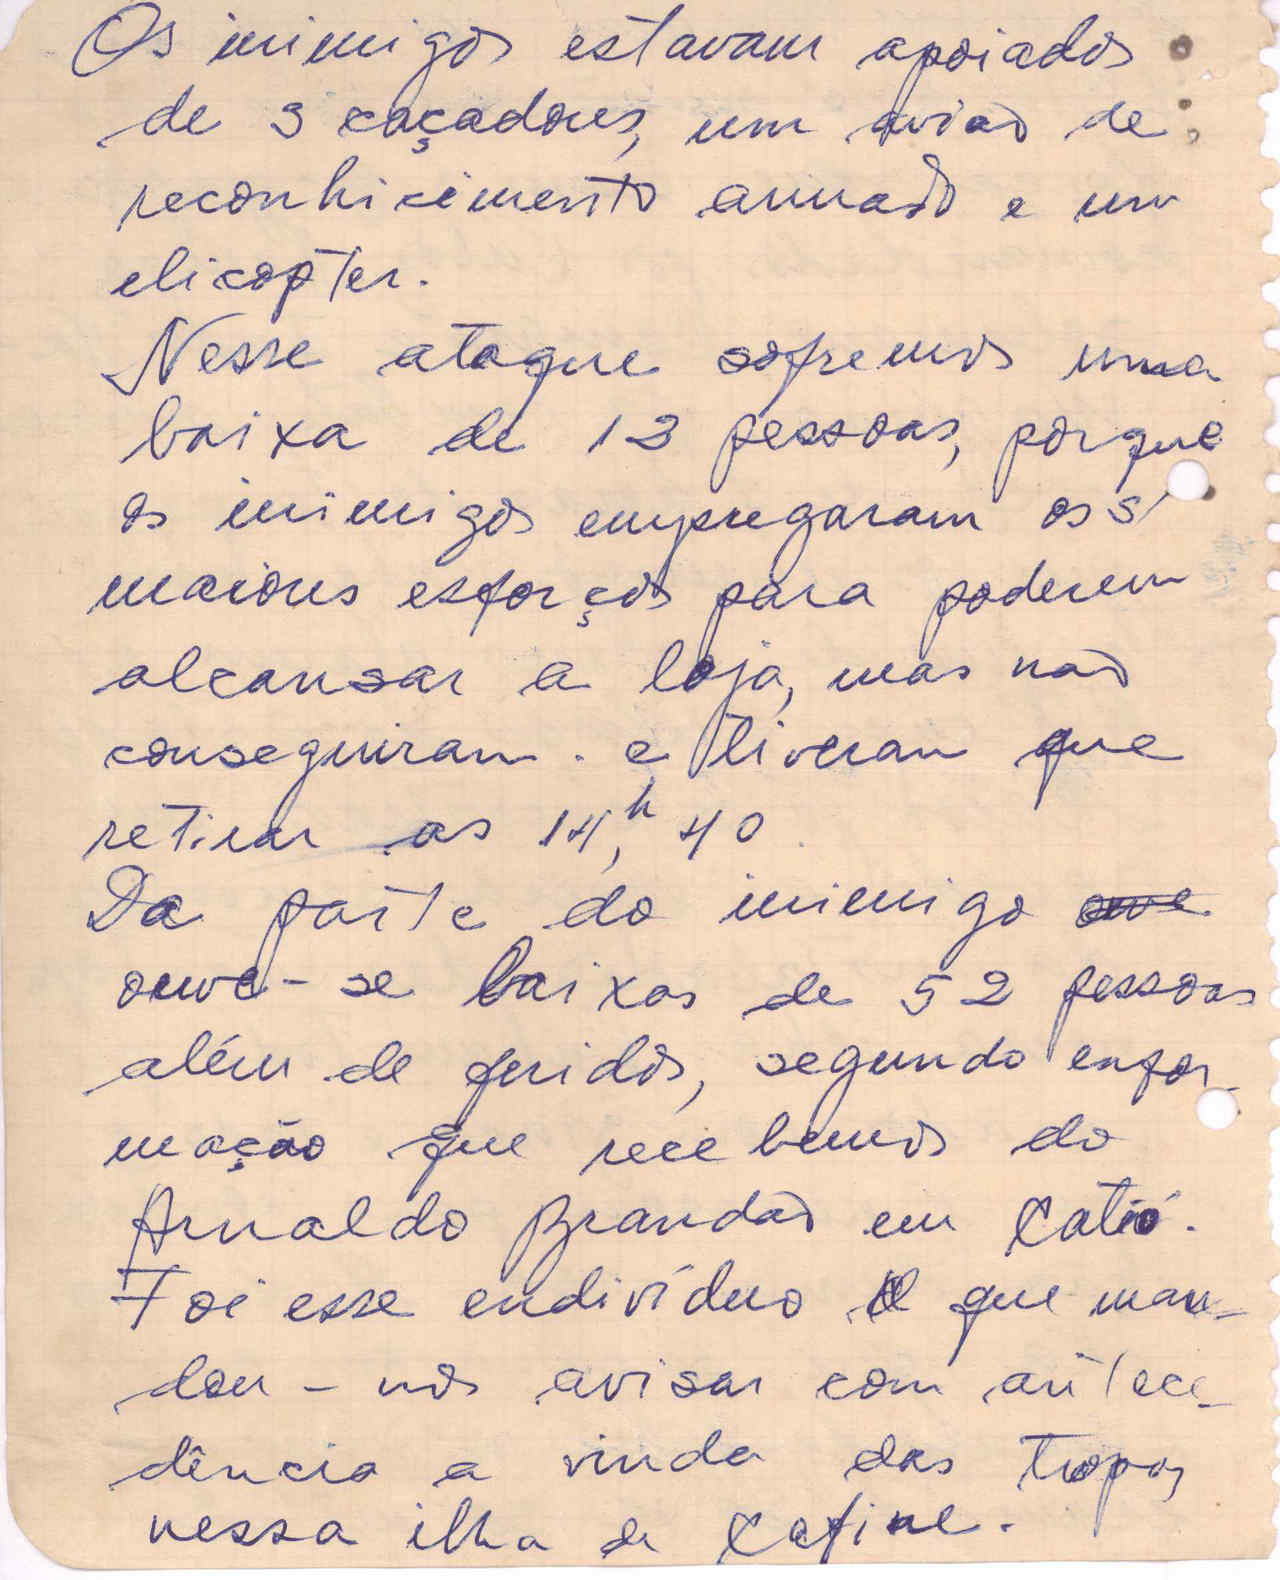 Os inimigos estavam apoiados
de 3 caçadores, um avião de
reconhicimento armado e um
elicopter.
Nesse ataque sofremos uma
baixa de 12 pessoas, porque
os inimigos empregaram os s
maiores esforços para poderem
alcansar a loja, mas não
conseguiram. e tiveram que
retirar as 14,h 40
Da parte do inimigo ouve
ouve-se baixas de 52 pessoas
além de feridos, segundo enfor-
mação que recebemos do
Arnaldo Brandão em Catió.
Foi esse endivíduo que man-
dou-nos avisar com antece-
dência a vinda das tropas
nessa ilha de Cafine.